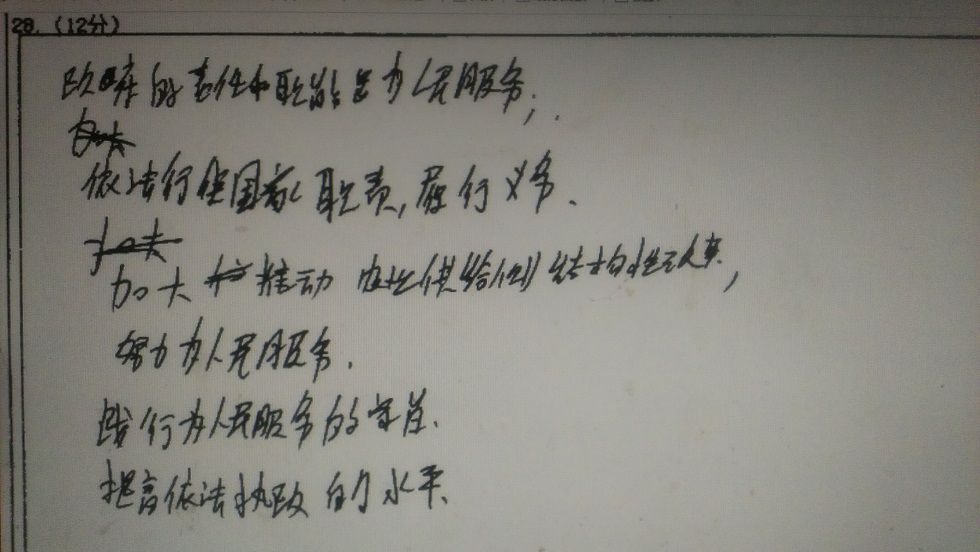 28.(12分)
政府的责任和职能是为人民服务;.
依法行使国家职责,履行义务、
加大推动农业供给侧结构性改革,
努力为人民服务.
践行为人民服务的宗旨.
提高依法执政的水平.